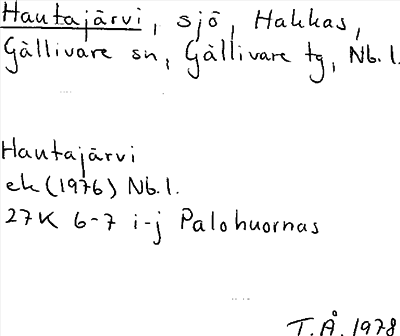 Hautajärvi, sjö, Hakkas,
Gällivare sn, Gällivare tg, Nb. l.
Hautajärvi
ek (1976) Nb. l.
27K 6-7 i-j Palohuornas
T. Å. 1978